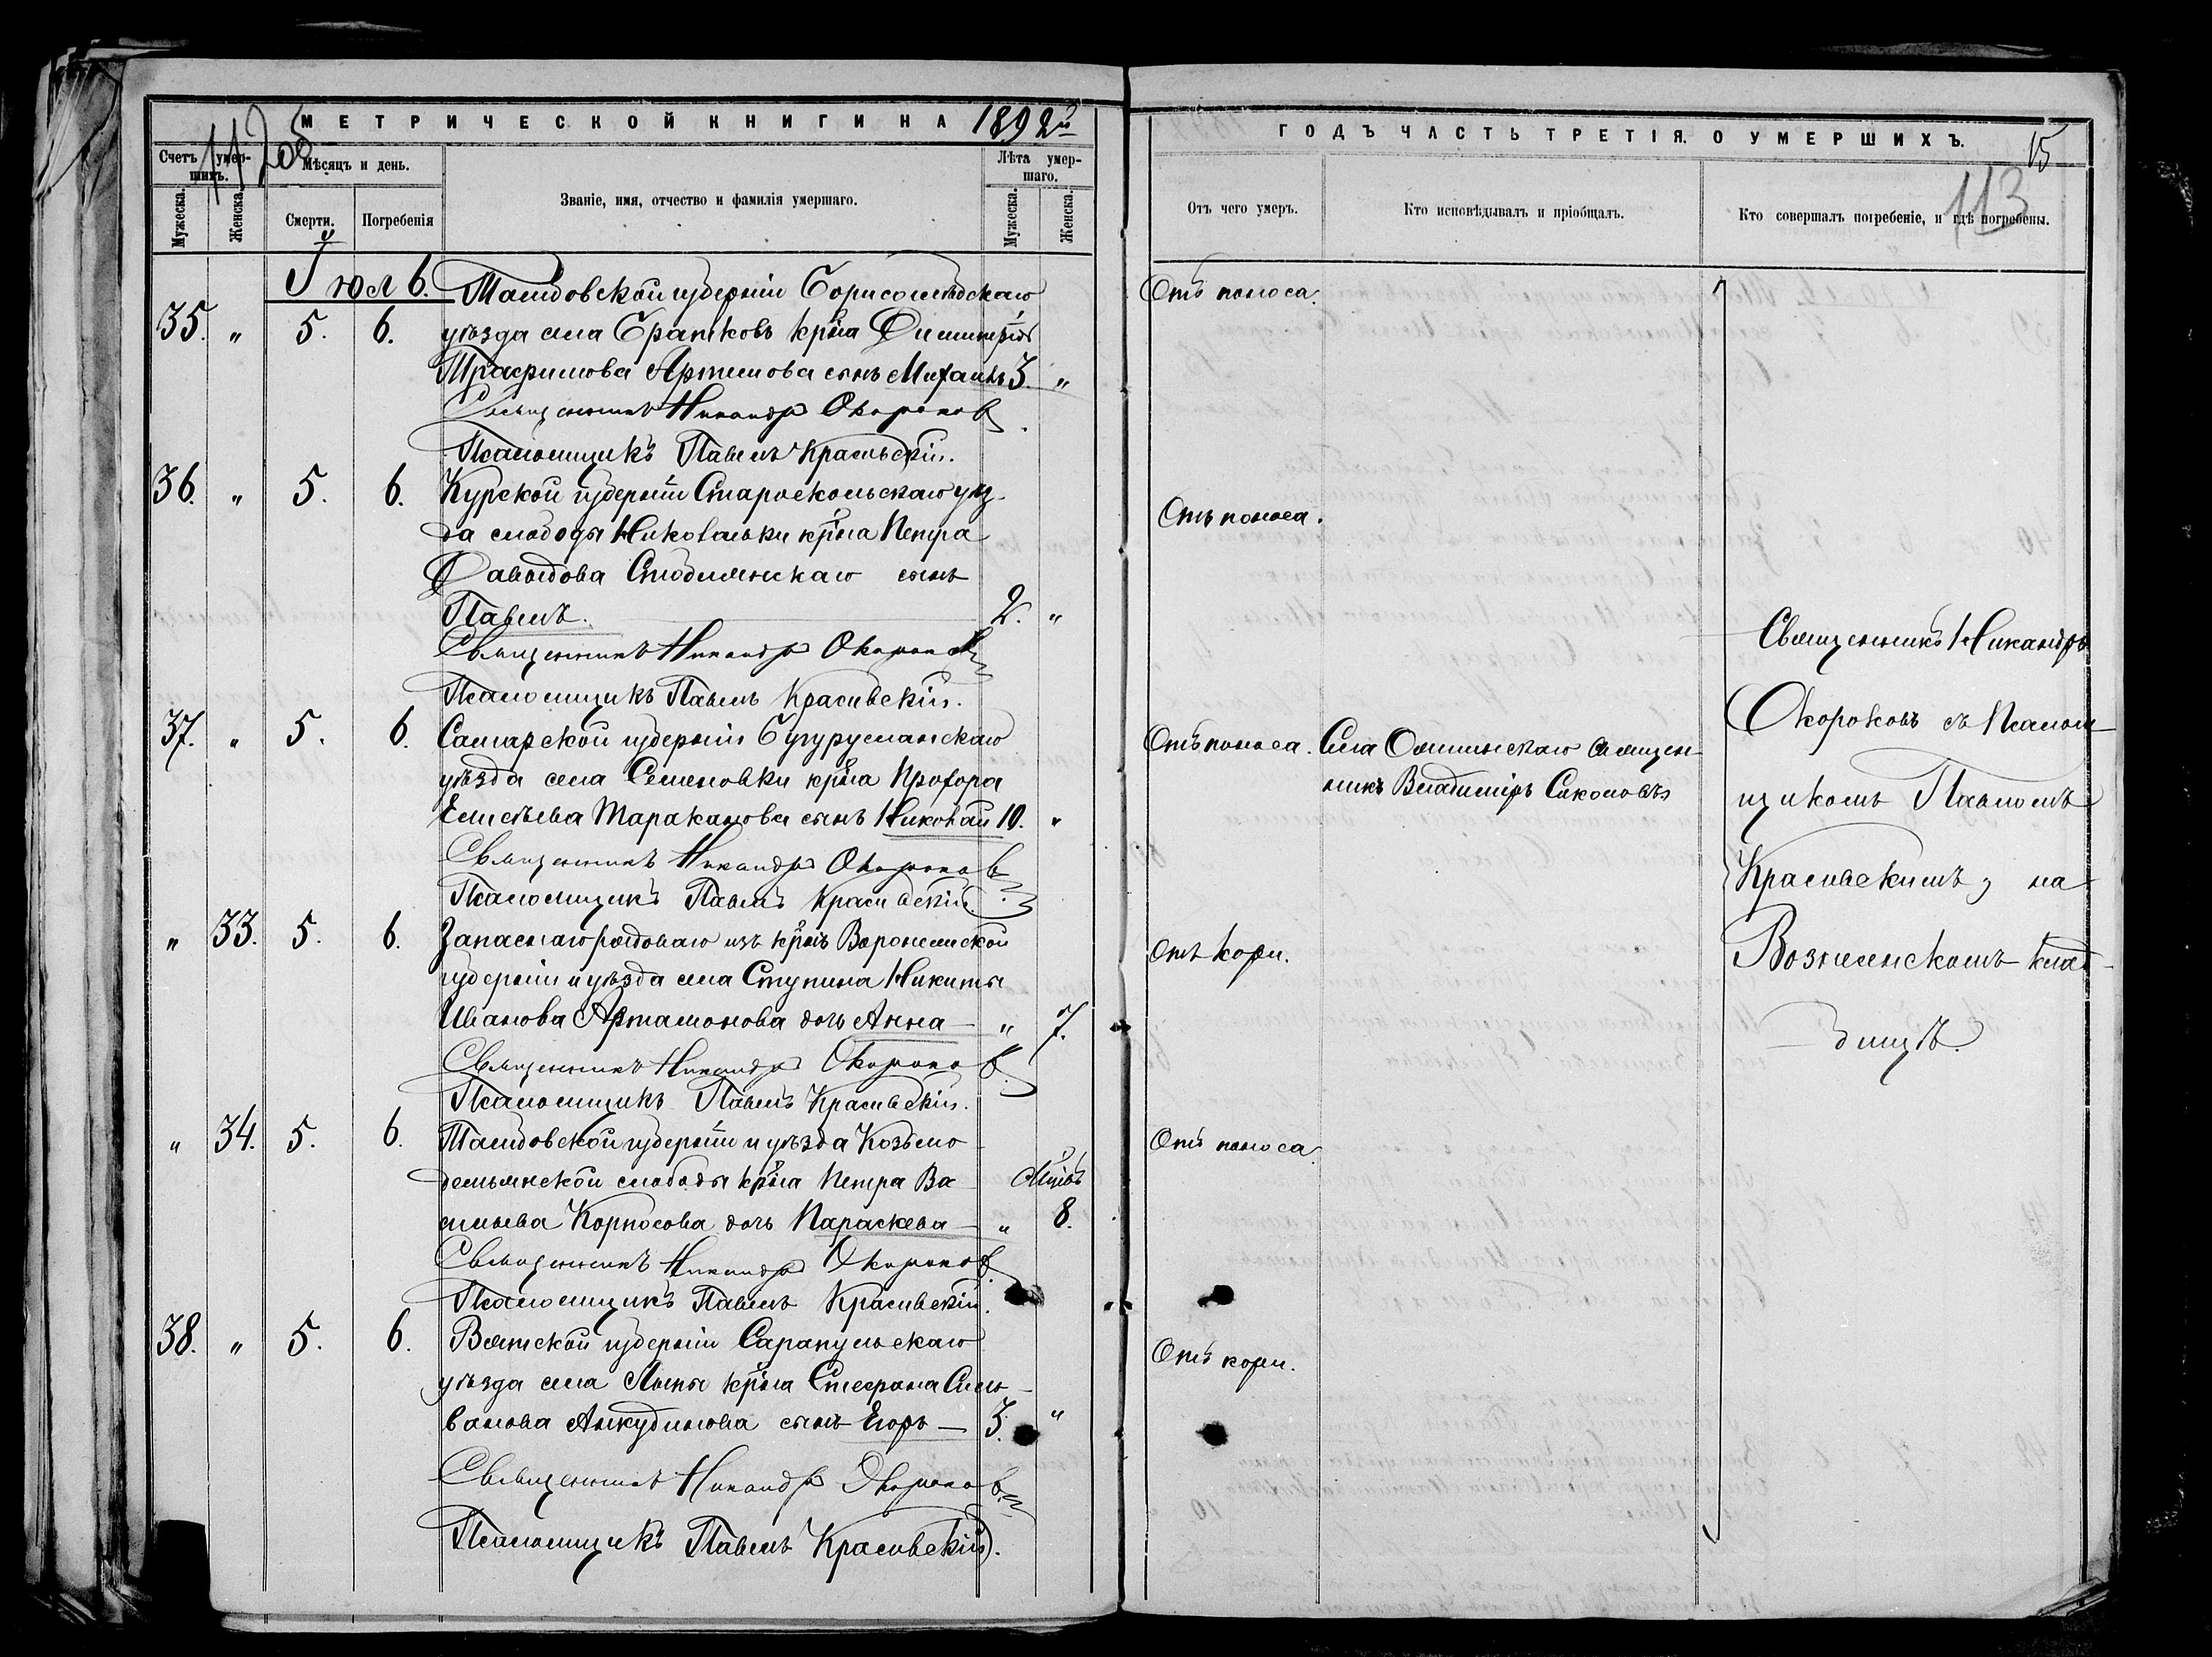 МЕТРИЧЕСКОЙ КНИГИ НА 1892й
ГОДЪ ЧАСТЬ ТРЕТІЯ. О УМЕРШИХЪ.
15
113
Счетъ умершихъ.
Мужеска.
Женска.
Мѣсяцъ и день.
Смерти.
Погребенія
Званіе, имя, отчество и фамилія умершаго.
Лѣта умершаго.
Мужеска.
Женска.
Отъ чего умеръ.
Кто исповѣдывалъ и пріобщалъ.
Кто совершалъ погребеніе, и гдѣ погребены.
Іюль.
Тамбовской губерніи Борисоглѣбскаго
Отъ поноса.
35. " 5. 6. уѣзда села Братковъ кр҃на Димитрія
Трафимова Артемова сынъ Михаилъ 3. "
Священникъ Никандръ Окороковъ
Псаломщикъ Павелъ Красивскій.
36. " 5. 6. Курской губерніи Староскольскаго уѣз-
да слободы Николаевки кр҃на Петра
Отъ поноса.
Давыдова сынъ
Павелъ. 2. "
Священникъ Никандръ Окороковъ
Псаломщикъ Павелъ Красивскій.
37. " 5. 6. Самарской губерніи Бугурусланскаго
Отъ поноса. Села священ-
уѣзда села Семеновки кр҃на Прохора
никъ Владиміръ Соколовъ
Елисѣева Тараканова сынъ Николай 10. "
Священникъ Никандръ Окороковъ
Псаломщикъ Павелъ Красивскій
" 33. 5. 6. Запаснаго рядоваго изъ кр҃нъ Воронежской
Отъ кори.
губерніи и уѣзда села Ступина Никиты
Иванова Артамонова дочь Анна " 7.
Священникъ Никандръ Окороковъ
Псаломщикъ Павелъ Красивскій.
" 34. 5. 6. Тамбовской губерніи и уѣзда Козьмо-
Отъ поноса
демьянской слободы кр҃на Петра Ва-
Мцвъ
сильева Корносова дочь Параскева " 8.
Священникъ Никандръ Окороковъ
Псаломщикъ Павелъ Красивскій.
38. " 5. 6. Вятской губерніи Сарапульскаго
Отъ кори.
уѣзда села кр҃на Стефана Силь-
ванова Анкудинова сынъ Егоръ 3. "
Священникъ Никандръ Окороковъ
Псаломщикъ Павелъ Красивскій.
Священникъ Никандръ
Окороковъ съ Псалом-
щикомъ Павломъ
Красивскимъ, на
Вознесенскомъ клад-
бищѣ.